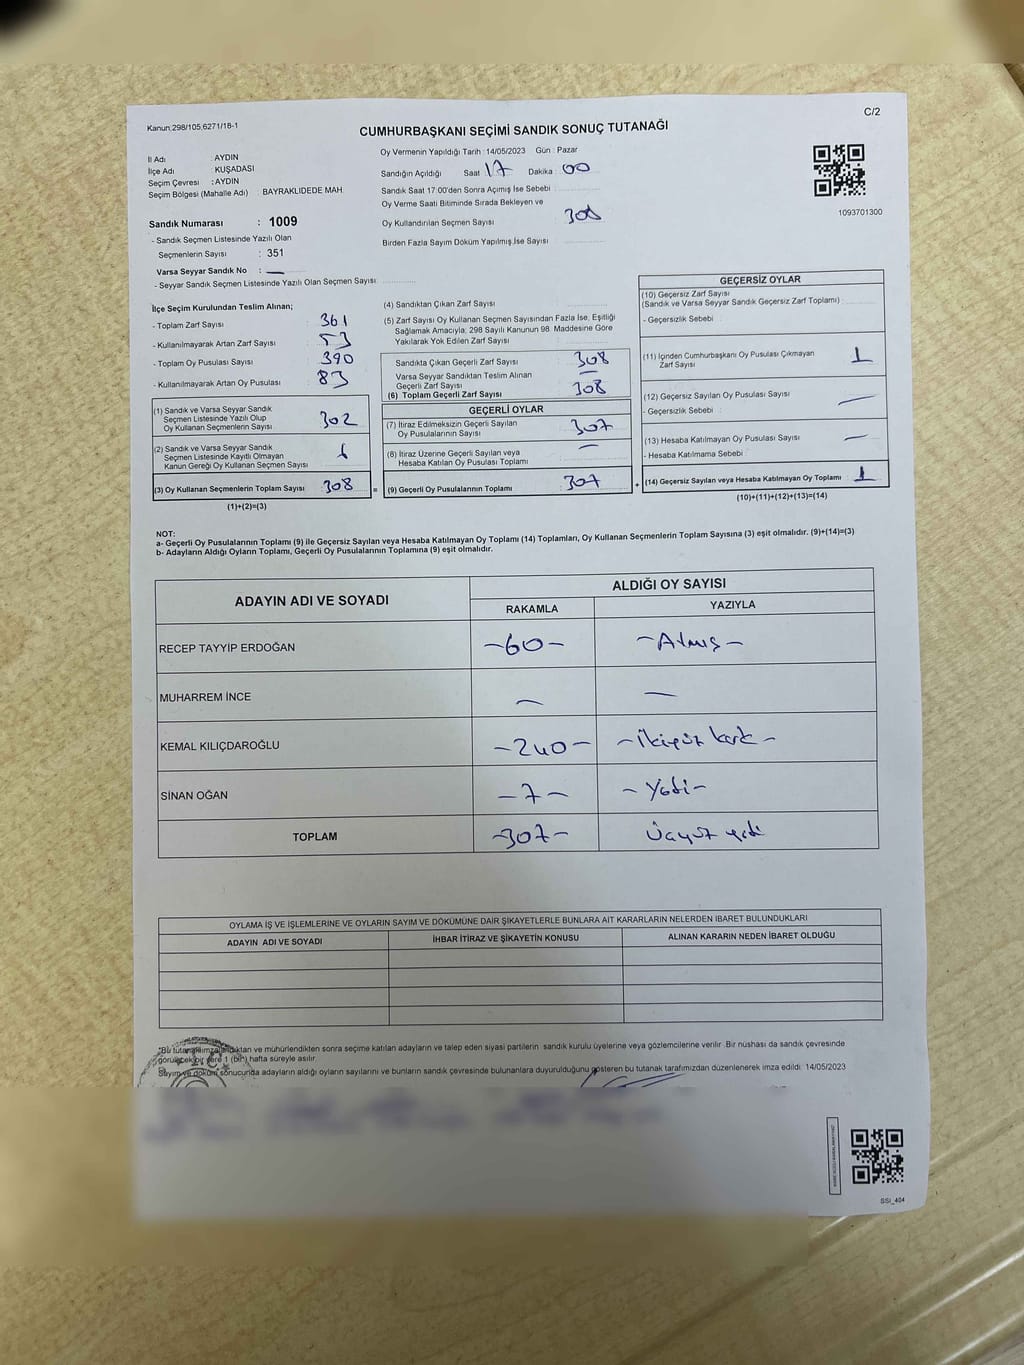 C/2
Kanun;298/105,6271/18-1
CUMHURBAŞKANI SEÇİMİ SANDIK SONUÇ TUTANAĞI
İl Adı : AYDIN
İlçe Adı : KUŞADASI
Seçim Çevresi : AYDIN
Seçim Bölgesi (Mahalle Adı) : BAYRAKLIDEDE MAH.
Sandık Numarası : 1009
- Sandık Seçmen Listesinde Yazılı Olan
Seçmenlerin Sayısı : 351
Varsa Seyyar Sandık No : —
- Seyyar Sandık Seçmen Listesinde Yazılı Olan Seçmen Sayısı
Oy Vermenin Yapıldığı Tarih : 14/05/2023 Gün : Pazar
Sandığın Açıldığı Saat 17 Dakika : 00
Sandık Saat 17:00'den Sonra Açımış İse Sebebi
Oy Verme Saati Bitiminde Sırada Bekleyen ve
Oy Kullandırılan Seçmen Sayısı 308
Birden Fazla Sayım Döküm Yapılmış İse Sayısı
1093701300
İlçe Seçim Kurulundan Teslim Alınan;
- Toplam Zarf Sayısı : 361
- Kullanılmayarak Artan Zarf Sayısı : 53
- Toplam Oy Pusulası Sayısı : 390
- Kullanılmayarak Artan Oy Pusulası : 83
(1) Sandık ve Varsa Seyyar Sandık
Seçmen Listesinde Yazılı Olup
Oy Kullanan Seçmenlerin Sayısı : 302
(2) Sandık ve Varsa Seyyar Sandık
Seçmen Listesinde Kayıtlı Olmayan
Kanun Gereği Oy Kullanan Seçmen Sayısı : 6
(3) Oy Kullanan Seçmenlerin Toplam Sayısı : 308 =
(1)+(2)=(3)
(4) Sandıktan Çıkan Zarf Sayısı
(5) Zarf Sayısı Oy Kullanan Seçmen Sayısından Fazla İse, Eşitliği
Sağlamak Amacıyla; 298 Sayılı Kanunun 98. Maddesine Göre
Yakılarak Yok Edilen Zarf Sayısı
Sandıkta Çıkan Geçerli Zarf Sayısı : 308
Varsa Seyyar Sandıktan Teslim Alınan
Geçerli Zarf Sayısı : —
(6) Toplam Geçerli Zarf Sayısı 308
GEÇERLİ OYLAR
(7) İtiraz Edilmeksizin Geçerli Sayılan
Oy Pusulalarının Sayısı : 307
(8) İtiraz Üzerine Geçerli Sayılan veya
Hesaba Katılan Oy Pusulası Toplamı : —
(9) Geçerli Oy Pusulalarının Toplamı : 307 +
GEÇERSİZ OYLAR
(10) Geçersiz Zarf Sayısı
(Sandık ve Varsa Seyyar Sandık Geçersiz Zarf Toplamı) :
- Geçersizlik Sebebi :
(11) İçinden Cumhurbaşkanı Oy Pusulası Çıkmayan
Zarf Sayısı 1
(12) Geçersiz Sayılan Oy Pusulası Sayısı —
- Geçersizlik Sebebi :
(13) Hesaba Katılmayan Oy Pusulası Sayısı —
- Hesaba Katılmama Sebebi :
(14) Geçersiz Sayılan veya Hesaba Katılmayan Oy Toplamı : 1
(10)+(11)+(12)+(13)=(14)
NOT:
a- Geçerli Oy Pusulalarının Toplamı (9) ile Geçersiz Sayılan veya Hesaba Katılmayan Oy Toplamı (14) Toplamları, Oy Kullanan Seçmenlerin Toplam Sayısına (3) eşit olmalıdır. (9)+(14)=(3)
b- Adayların Aldığı Oyların Toplamı, Geçerli Oy Pusulalarının Toplamına (9) eşit olmalıdır.
ADAYIN ADI VE SOYADI ALDIĞI OY SAYISI
RAKAMLA YAZIYLA
RECEP TAYYİP ERDOĞAN -60- -Atmış-
MUHARREM İNCE — —
KEMAL KILIÇDAROĞLU -240- -İkiyüz kırk-
SİNAN OĞAN -7- -Yedi-
TOPLAM -307- Üçyüz yedi
OYLAMA İŞ VE İŞLEMLERİNE VE OYLARIN SAYIM VE DÖKÜMÜNE DAİR ŞİKAYETLERLE BUNLARA AİT KARARLARIN NELERDEN İBARET BULUNDUKLARI
ADAYIN ADI VE SOYADI İHBAR İTİRAZ VE ŞİKAYETİN KONUSU ALINAN KARARIN NEDEN İBARET OLDUĞU
*Bu tutanak imzalandıktan ve mühürlendikten sonra seçime katılan adayların ve talep eden siyasi partilerin sandık kurulu üyelerine veya gözlemcilerine verilir. Bir nüshası da sandık çevresinde
görülecek bir yere 1 (bir) hafta süreyle asılır.
Sayım ve döküm sonucunda adayların aldığı oyların sayılarını ve bunların sandık çevresinde bulunanlara duyurulduğunu gösteren bu tutanak tarafımızdan düzenlenerek imza edildi. 14/05/2023
SSI_404